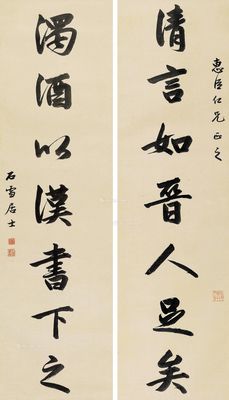 惠臣仁兄正之
清言如晉人足矣
濁酒以漢書下之
石雪居士